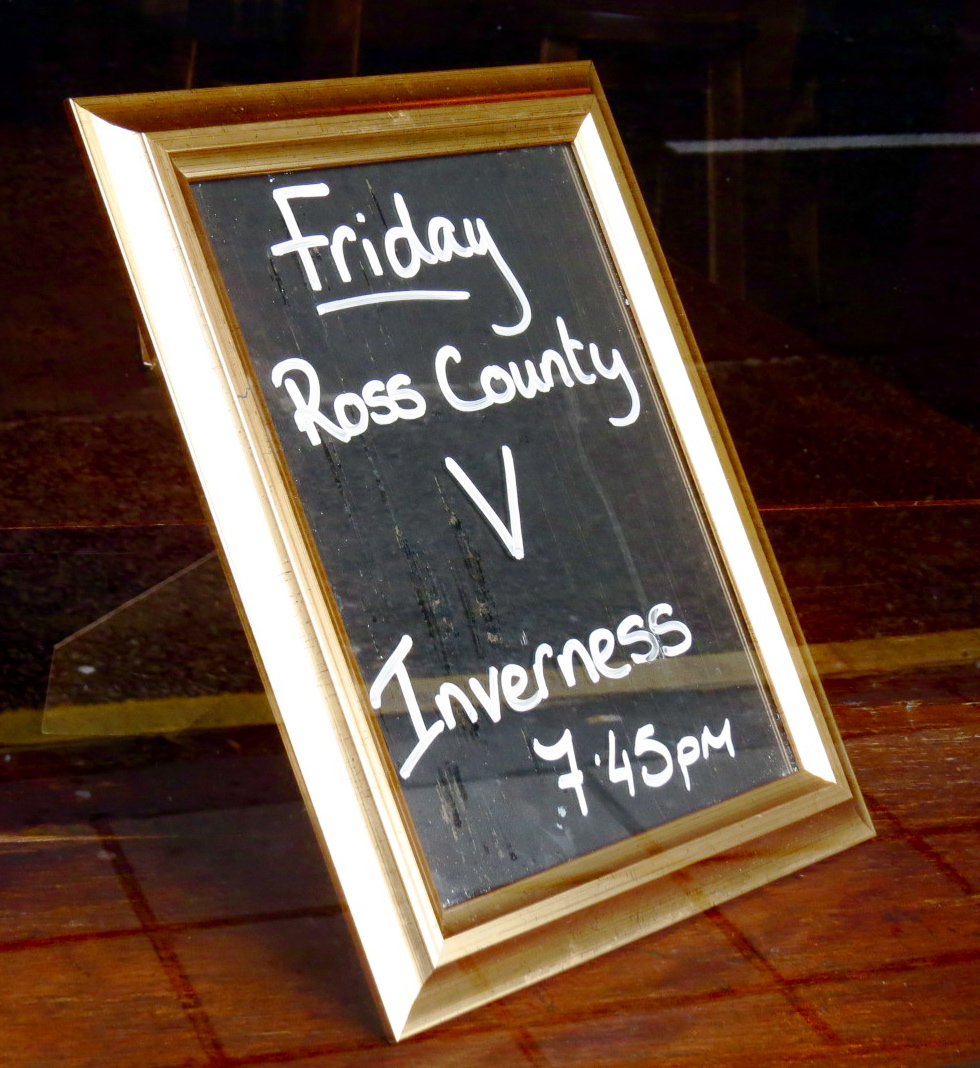 Friday
Ross County
V
Inverness
7.45pm